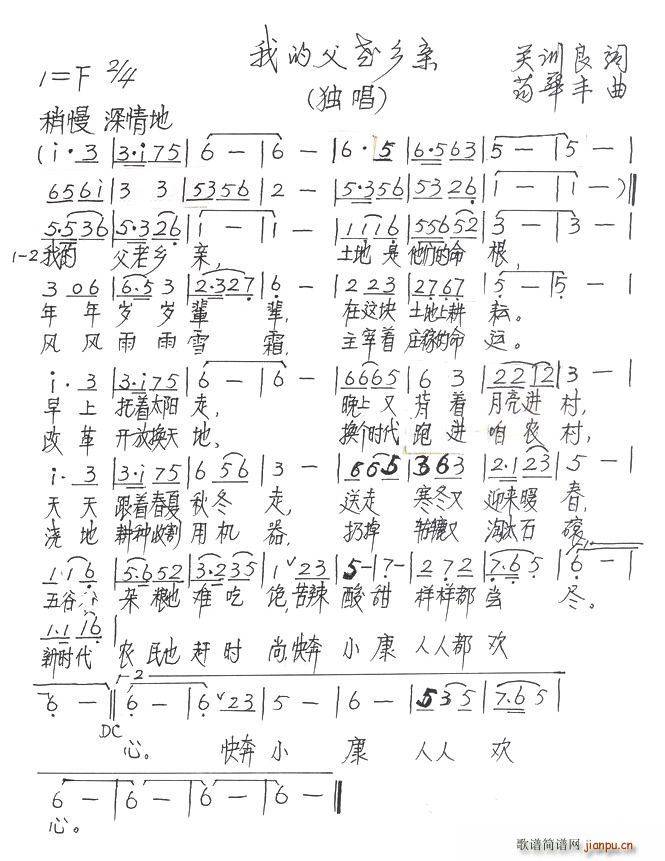 我的父老乡亲
1=F 2/4
(独唱)
关训良 词
荀華丰 曲
稍慢 深情地
(i·3|3·i75|6-|6-|6·5|6·563|5-|5-|
6561|3 3|5356|2-|5·356|5326|1-|1-)‖
5·536|5·326|1-|1-|1116|55652|3-|3-|
1-2 我的 父老乡 亲, 土地是 他们的命 根,
3 06|6·53|2·327|6·-|223|2767|5-|5-|
年 年岁岁 輩 輩, 在这块 土地上耕 耘。
风 风雨雨 雪 霜, 主宰着 庄稼的命 运。
i·3|3·i75|6-|6-|66665|6 3|2212|3-|
早上 托着太阳 走, 晚上又 背着 月亮进 村,
改革 开放换天 地, 换个时代 跑进 咱农 村,
i·3|3·i75|6 56|3-|6665|3 63|2·123|5-|
天天 跟着春夏 秋冬 走, 送走 寒冬又 迎来暖 春,
浇地 耕种收割 用机 器, 扔掉 又 淘汰石 磙
1·16|5·652|3·235|1ˇ23|5-|7-|272|7·65|6-|
五谷 杂粮也 难吃 饱,苦辣 酸 甜 样样都 尝 尽。
1·116|
新时代 农民也 赶时 尚,快奔 小 康 人人都 欢
6-‖6-|6ˇ23|5-|6-|535|7·65|
1-2
DC
心。 快奔 小 康 人人 欢
6-|6-|6-|6-‖
心。
歌谱简谱网 jianpu.cn